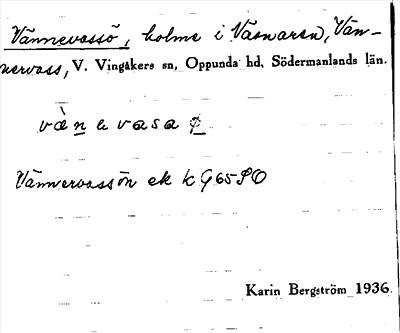 Vännevassö, holme i Vasnaren, Vän-
nevass, V. Vingåkers sn, Oppunda hd, Södermanlands län.
vὰnevasaφ
Vännevassön ek k G65SO
Karin Bergström 1936.